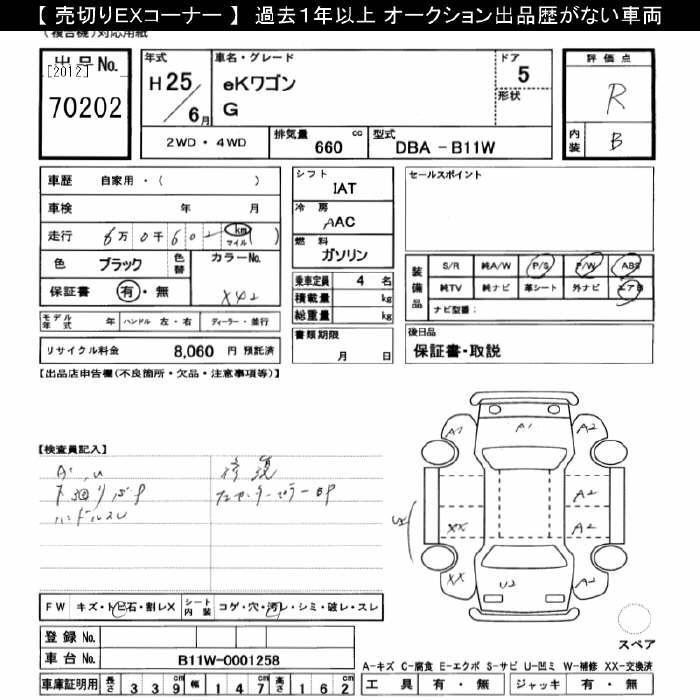 【 売切りEXコーナー 】 過去1年以上 オークション出品歴がない車両
(複合機)対応用紙
出品No.
[2012]
70202
年式
H 25 / 6 月
車名・グレード
eKワゴン
G
ドア
5
形状
評価点
R
内装
B
2WD・4WD
排気量
660 cc
型式
DBA - B11W
車歴 自家用・( )
車検 年 月
走行 6万0千602 km マイル ( )
色 ブラック 色替 カラーNo.
X42
保証書 有・無
モデル年式 年 ハンドル 左・右 ディーラー・並行
リサイクル料金 8,060 円 預託済
シフト
IAT
冷房
AAC
燃料
ガソリン
乗車定員 4 名
積載量 kg
総重量 kg
書類期限
月 日
セールスポイント
装備品
S/R 純A/W P/S P/W ABS
純TV 純ナビ 革シート 外ナビ エアB
ナビ型番:
後日品
保証書・取説
【出品店申告欄(不良箇所・欠品・注意事項等)】
【検査員記入】
A1, U
下回りサビ
ハンドルスレ
修復
センターピラーBP
A1 A1 A2
A2
U2 XX A2
XX U2 A2
FW キズ・トビ石・割レX シート内装 コゲ・穴・汚レ・シミ・破レ・スレ
登録 No.
車台 No. B11W-0001258
車庫証明用 長さ 339 幅 147 高さ 162
スペア
A-キズ C-腐食 E-エクボ S-サビ U-凹ミ W-補修 XX-交換済
工具 有・無 ジャッキ 有・無